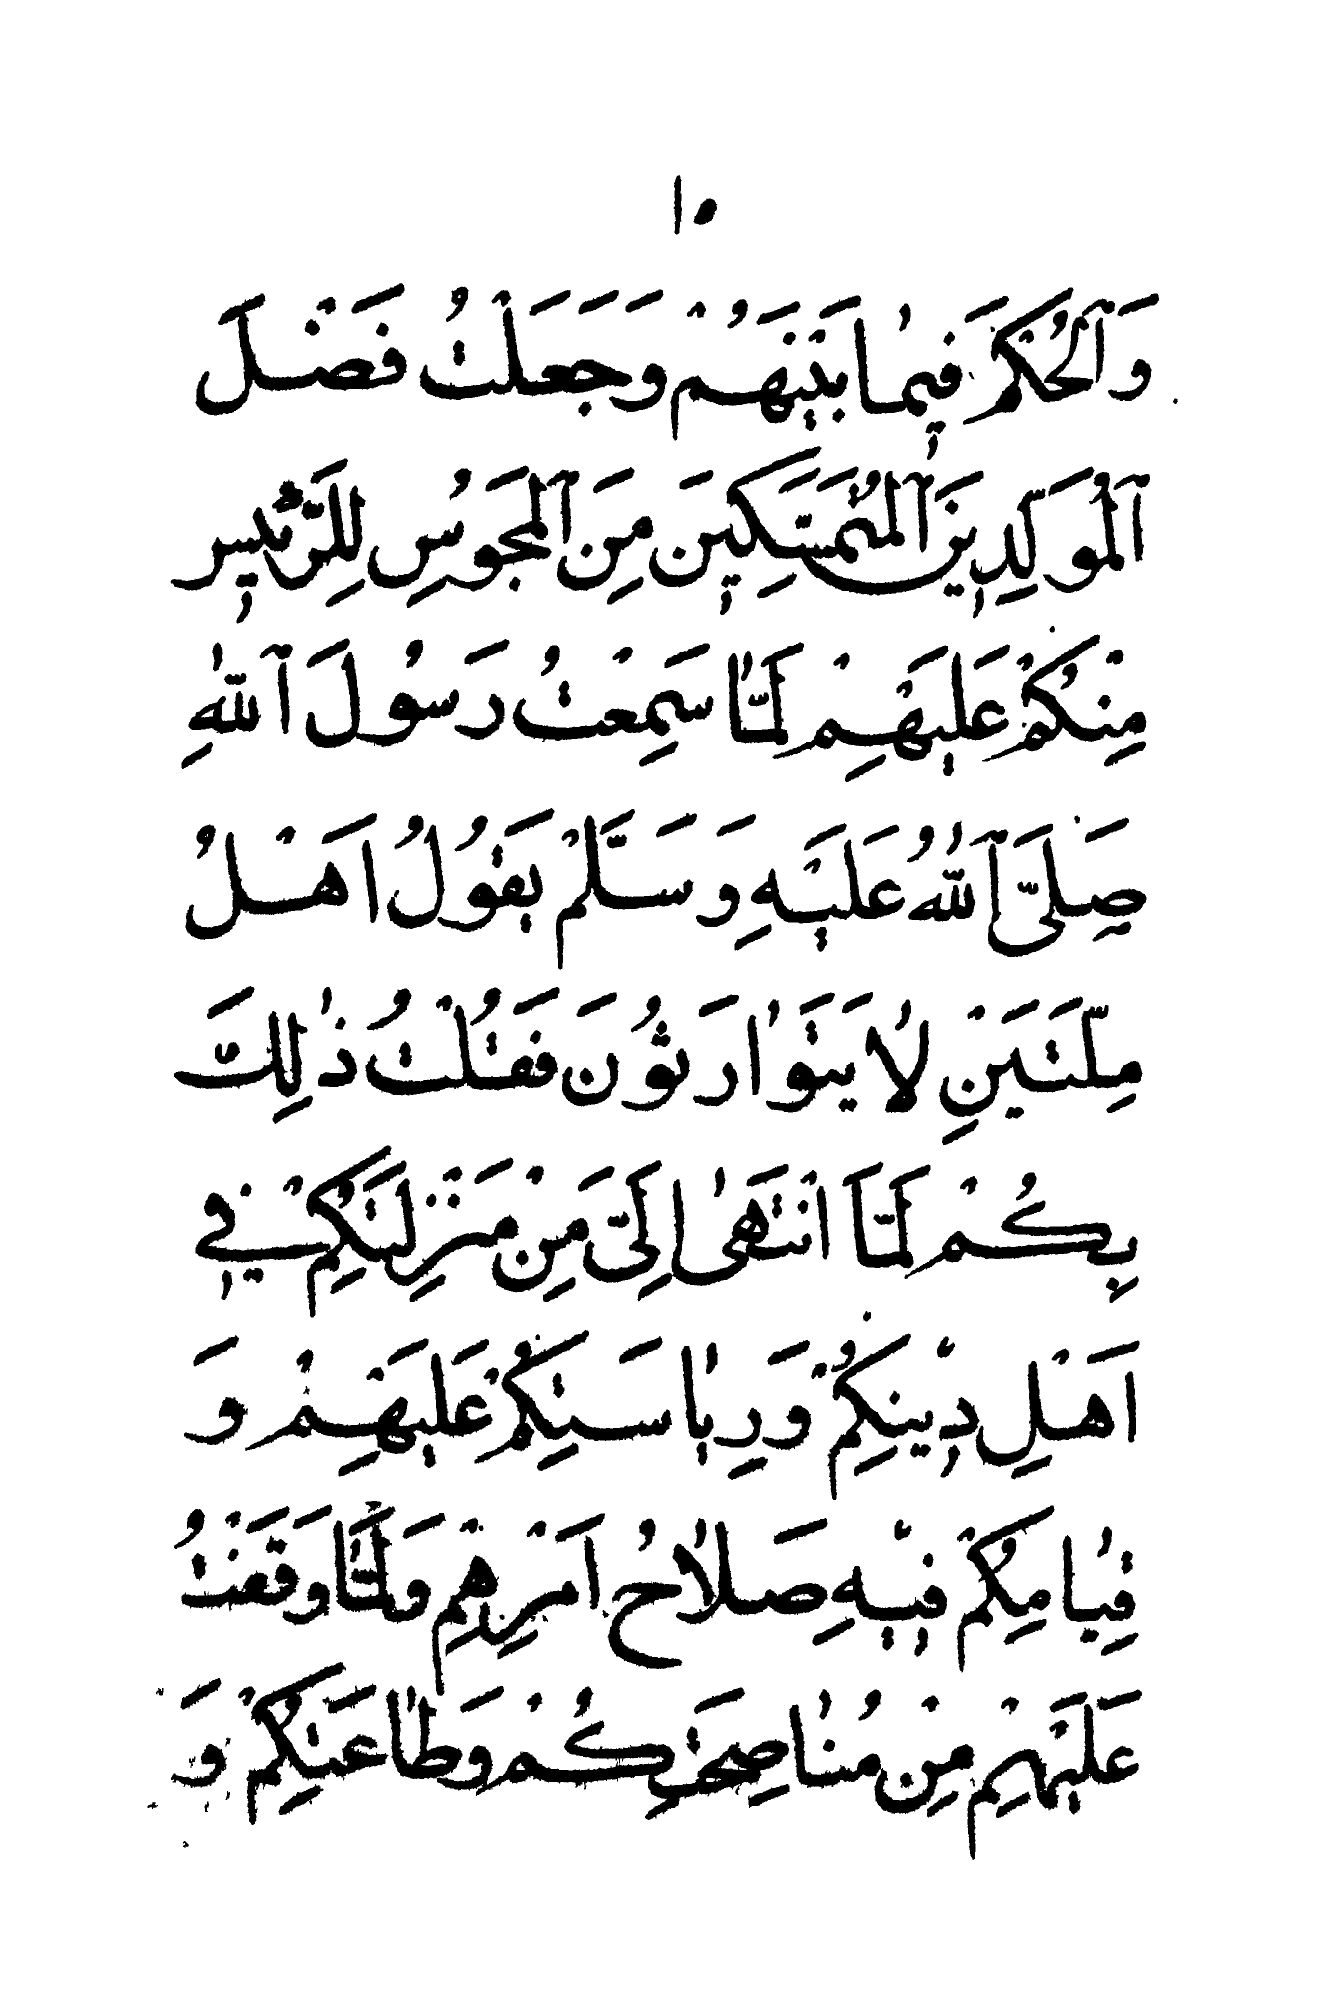 ١٠
وَٱلْحُكْمَ فِيمٰا بَيْنَهُمْ وَجَعَلْتُ فَضْلَ
ٱلْمُوَلِّدِينَ ٱلْمُتَمَسِّكِينَ مِنَ ٱلْمَجُوسِ لِلرَّئِيسِ
مِنْكُمْ عَلَيْهِمْ لَمّٰا سَمِعْتُ رَسُولَ ٱللّٰهِ
صَلَّى ٱللّٰهُ عَلَيْهِ وَ سَلَّمْ يَقُولُ اَهْلُ
مِلَّتَيْنِ لٰا يَتَوٰارَثُونَ فَقُلْتُ ذٰلِكَ
بِكُمْ لَمّٰا انْتَهىٰ اِلَىَّ مِنْ مَنْزِلَتِكُمْ فِي
اَهْلِ دِينِكُمْ وَرِيٰاسَتِكُمْ عَلَيْهِمْ وَ
قِيٰامِكُمْ فِيهِ صَلٰاحُ اَمْرِهِمْ وَلَمّٰا وَقَفْتُ
عَلَيْهِمْ مِنْ مُنٰاصَحَتِكُمْ وَطٰاعَتِكُمْ وَ